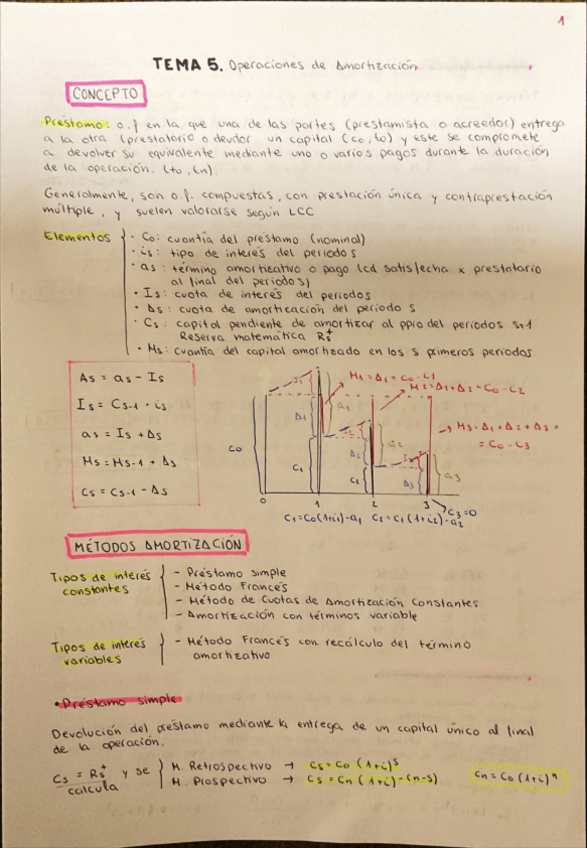 1
TEMA 5. Operaciones de Amortización
CONCEPTO
Préstamo: o.f en la que una de las partes (prestamista o acreedor) entrega
a la otra (prestatario o deudor un capital (Co, to) y este se compromete
a devolver su equivalente mediante uno o varios pagos durante la duración
de la operación. (to, tn)
Generalmente, son o.f. compuestas, con prestación única y contraprestación
múltiple, y suelen valorarse según LCC
Elementos
· Co: cuantía del préstamo (nominal)
· is: tipo de interés del periodo s
· as: término amortizativo o pago (cd satisfecha x prestatario
al final del periodo s)
· Is: cuota de interés del periodo s
· As: cuota de amortización del periodo s
· Cs: capital pendiente de amortizar al ppio del periodo s+1
Reserva matemática Rs+
· Ms: cuantía del capital amortizado en los s primeros periodos
As = as - Is
Is = Cs-1 · is
as = Is + As
Ms = Ms-1 + As
Cs = Cs-1 - As
M1 = A1 = Co - C1
M2 = A1 + A2 = Co - C2
M3 = A1 + A2 + A3 =
= Co - C3
I1
A1
a1
C1
Co
A2
a2
C2
A3
a3
0 1 2 3
C3 = 0
C1 = Co(1+i1) - a1 C2 = C1(1+i2) - a2
MÉTODOS AMORTIZACIÓN
Tipos de interés
constantes
- Préstamo simple
- Método Francés
- Método de Cuotas de Amortización Constantes
- Amortización con términos variable
Tipos de interés
variables
- Método Francés con recálculo del término
amortizativo
• Préstamo simple
Devolución del préstamo mediante la entrega de un capital único al final
de la operación.
Cs = Rs+ y se calcula
M. Retrospectivo → Cs = Co (1+i)^s
M. Prospectivo → Cs = Cn (1+i)^-(n-s)
Cn = Co (1+i)^n